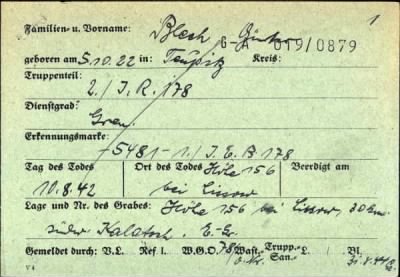 1
Familien- u. Vorname: Blech Günter
G-A 019/0879
geboren am 5.10.22 in: Teupitz Kreis:
Truppenteil:
2./J.R. 178
Dienstgrad:
Gren.
Erkennungsmarke:
-5481- 1./J.E.B 178
Tag des Todes Ort des Todes Höhe 156 Beerdigt am
10.8.42 bei Lissow
Lage und Nr. des Grabes: Höhe 156 bei Lissow, 30 km
südw Kalatsch. E.-Gr.
Gemeldet durch: V.L. Ref. I. W.G.O. 78 Wast.- Trupp.- San.- L./ Bl.
V 4